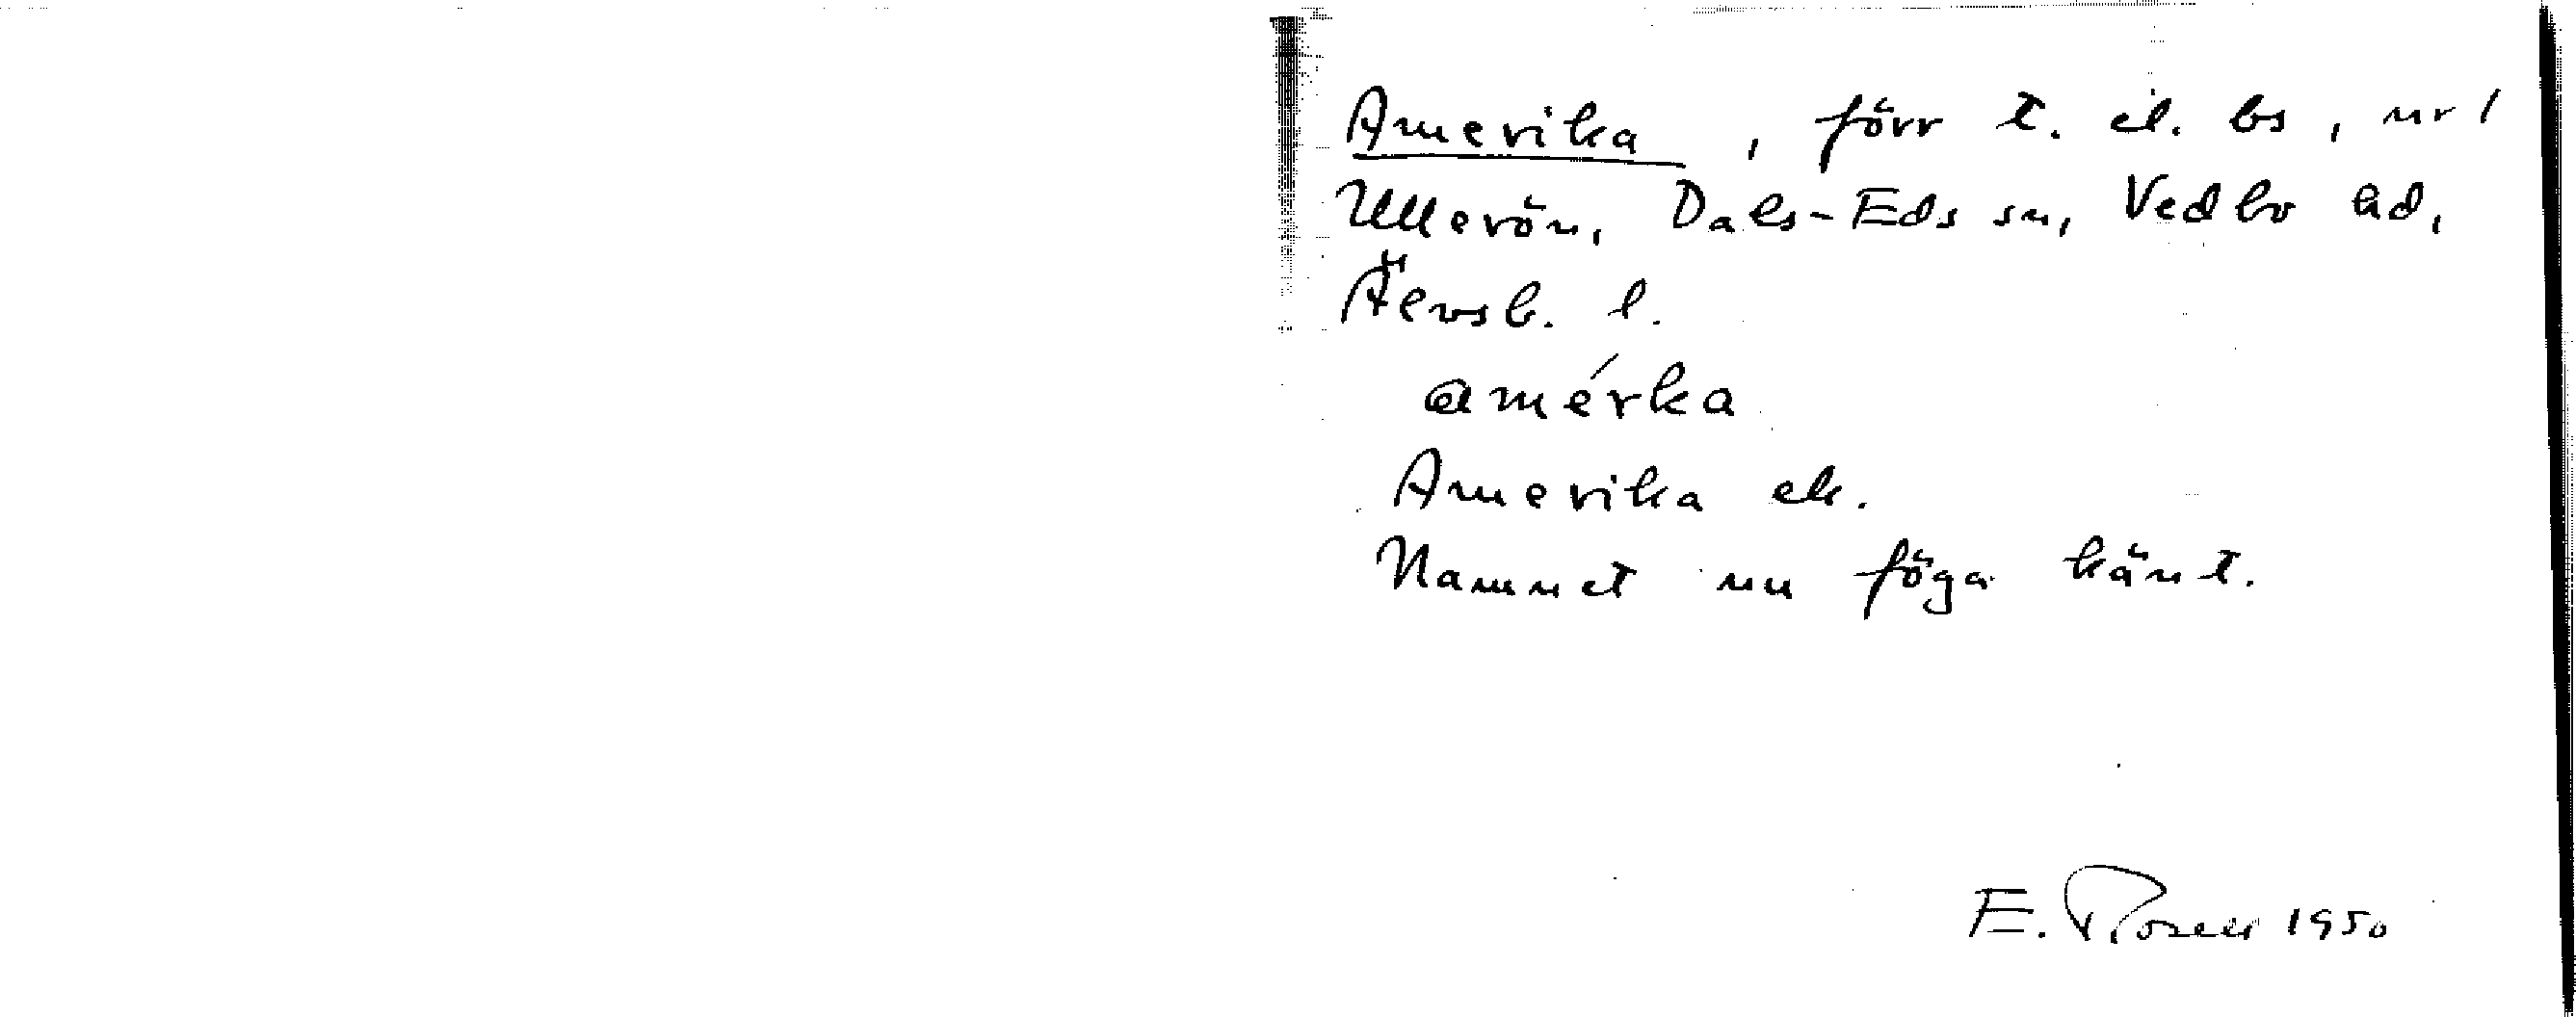 Amerika, förr t. el. bs, nr 1
Ullerön, Dals-Eds sn, Vedbo hd,
Älvsb. l.
amérka
Amerika ek.
Namnet nu föga känt.
E. Rosell 1950